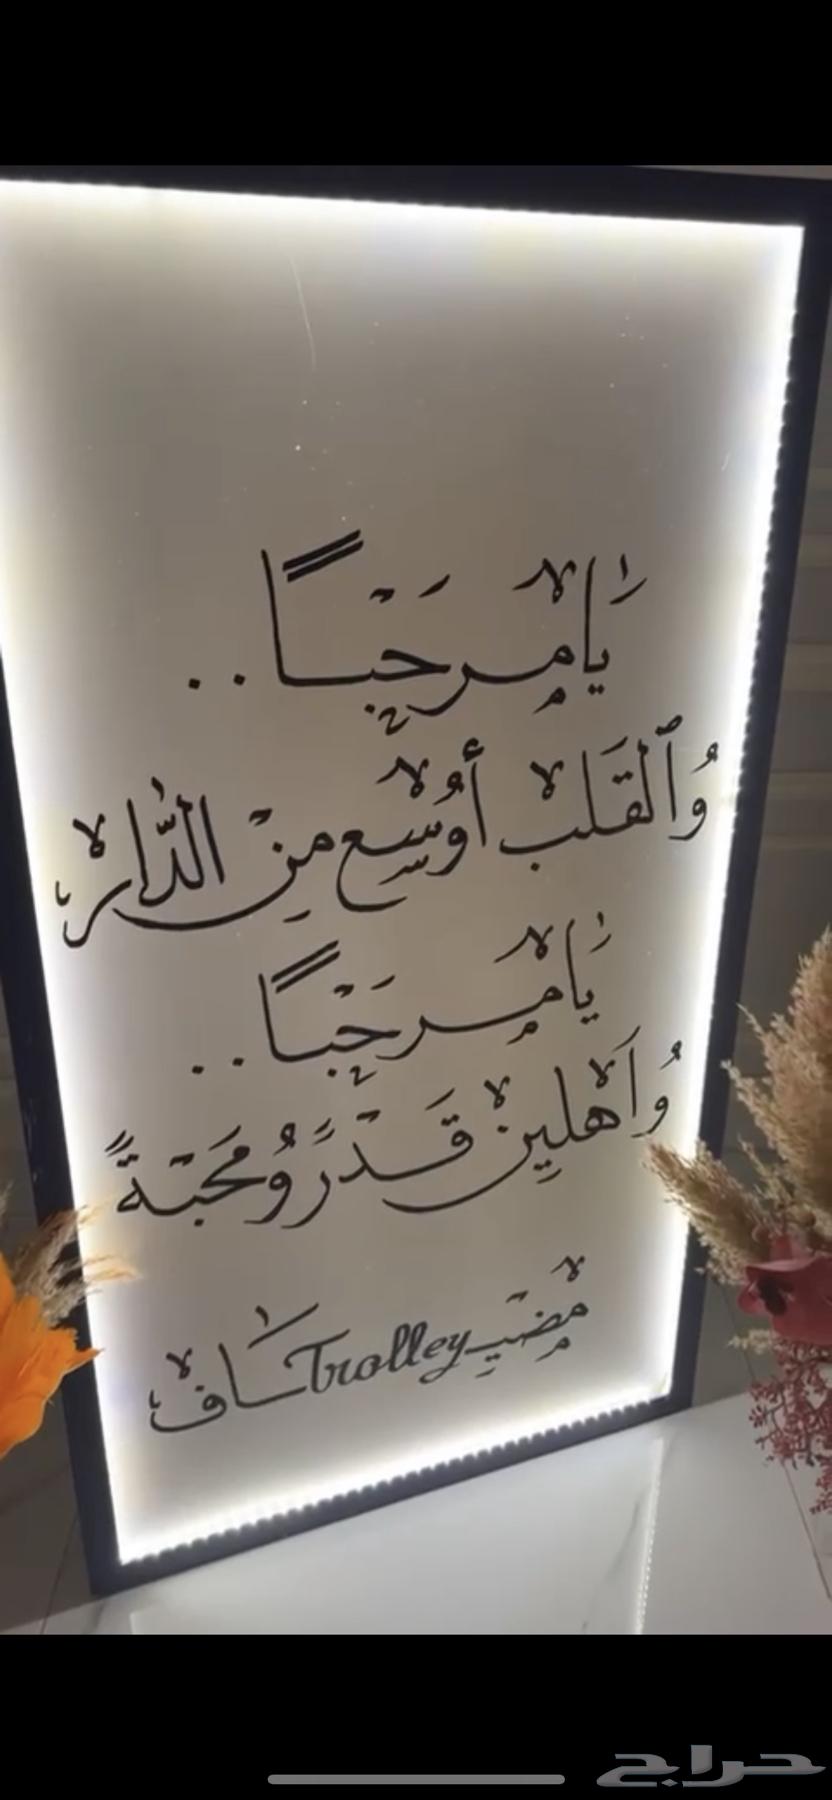 يَا مِرْحَبًا..
وُٱلْقَلْب أَوْسِع مِنْ الدَّارْ
يَا مِرْحَبًا..
وُاَهْلِينْ قَدْرَ وُمَحَبَّةً
مْضَيِّـ Trolley ـسَافْ
حراج